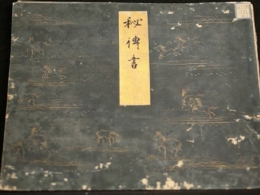 秘傳書